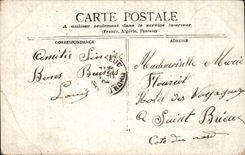 CARTE POSTALE
A utiliser seulement dans le service intérieur
(France, Algérie, Tunisie)
CORRESPONDANCE
ADRESSE
Amitiés Sincères
Bons Baisers
Louis
Mademoiselle Marie
Hotel des Voyageurs
à Saint Brieuc
Côtes du Nord